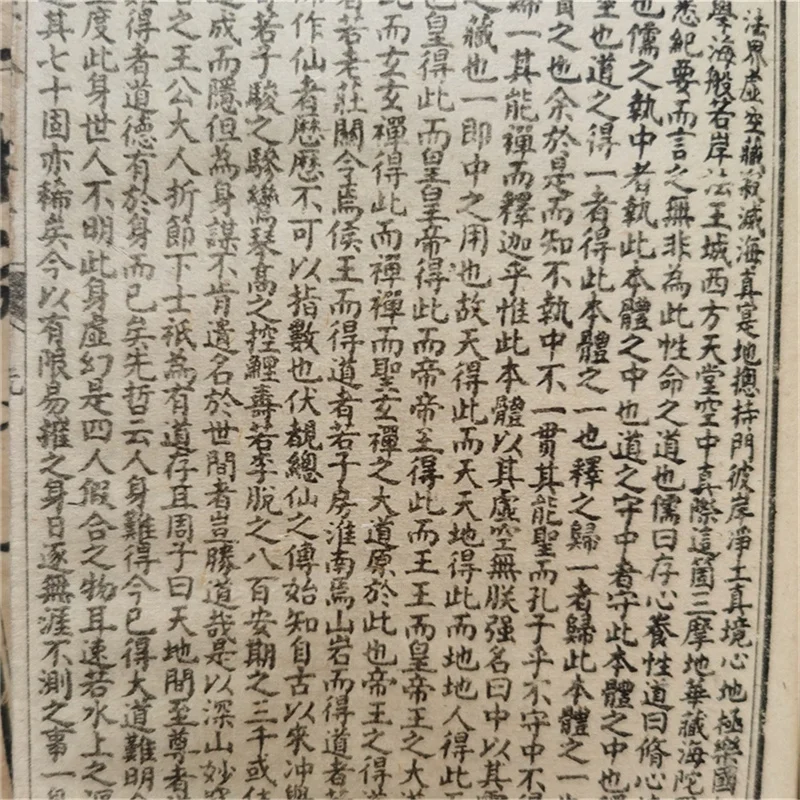 法界虛空藏寂滅海真寔地摠持門彼岸淨土真境心地極樂國
學海般若岸法王城西方天堂空中真際這箇三摩地華藏海陀
悉紀要而言之無非為此性命之道也儒曰存心養性道曰脩心
也儒之執中者執此本體之中也道之守中者守此本體之中也
空也道之得一者得此本體之一也釋之歸一者歸此本體之一
貫之也余於是而知不執中不一貫其能聖而孔子乎不守中不得
歸一其能禪而釋迦乎惟此本體以其虛空無朕强名曰中以其
之藏也一即中之用也故天得此而天天地得此而地地人得此
皇得此而皇皇帝得此而帝帝王得此而王王而皇帝王之大
此而玄玄禪得此而禪禪而聖玄禪之大道原於此也帝王之得道
者若老莊關令焉侯王而得道者若子房淮南焉山岩而得道者
作仙者歷歷不可以指數也伏覩總仙之傳始知自古以來冲
若子駿之驂鸞琴高之控鯉壽若李脫之八百安期之三千或
成而隱但為身謀不肯遺名於世間者豈勝道哉是以深山妙
之王公大人折節下士祇為有道存且周子曰天地間至尊者
難得者道德有於身而已矣先哲云人身難得今已得大道難明
度此身世人不明此身虛幻是四人假合之物耳速若水上之
其七十固亦稀矣今以有限易摧之身日逐無涯不測之事一